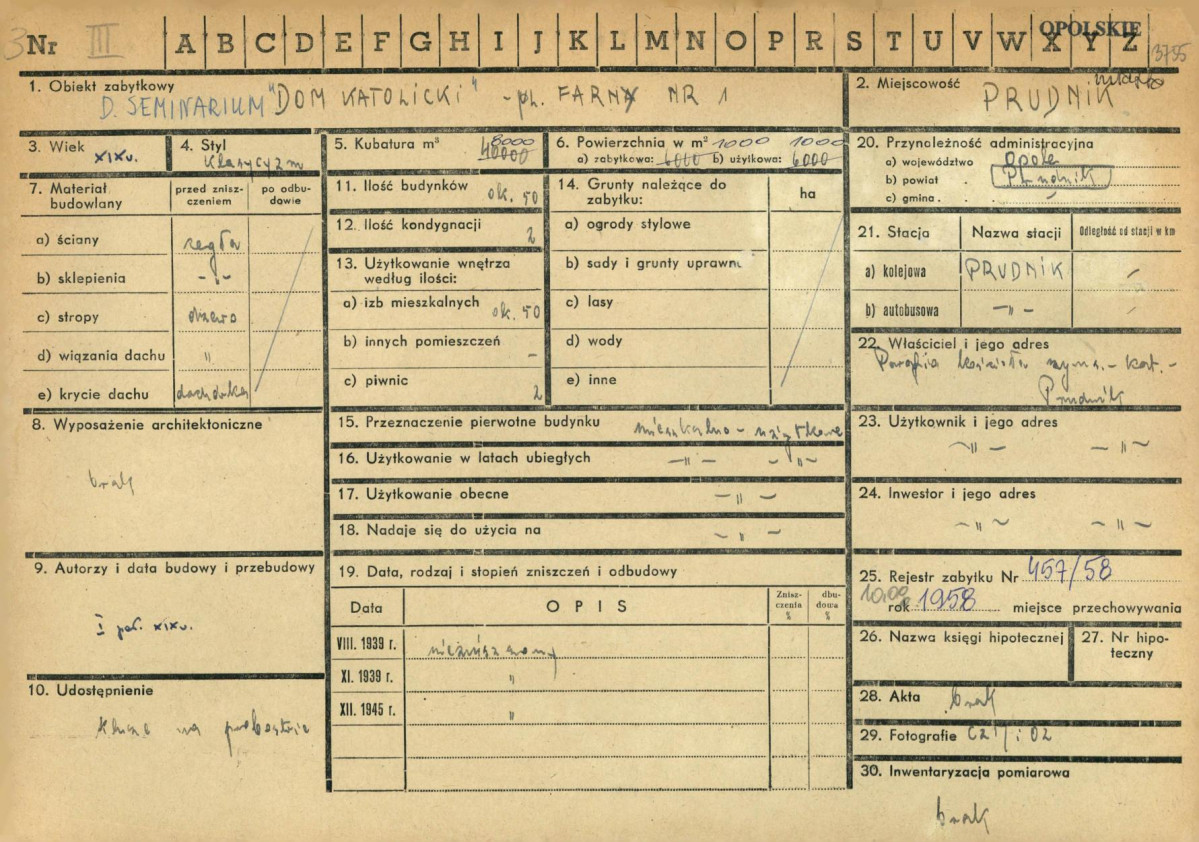 3 Nr III A B C D E F G H I J K L M N O P R S T U V W X Y Z OPOLSKIE 3755
1. Obiekt zabytkowy
D. SEMINARIUM "DOM KATOLICKI" - pl. FARNY NR 1
2. Miejscowość
PRUDNIK
3. Wiek XIX w.
4. Styl
Klasycyzm
5. Kubatura m³ 8000
40000
6. Powierzchnia w m² 1000 1000
a) zabytkowa: 6000 b) użytkowa: 6000
20. Przynoleżność administracyjna
a) województwo Opole
b) powiat . Prudnik
c) gmina . . -
7. Materiał budowlany
przed zniszczeniem
po odbudowie
a) ściany cegła
b) sklepienia -"-
c) stropy drzewo
d) wiązania dachu "
e) krycie dachu dachówka
11. Ilość budynków ok. 50
12. Ilość kondygnacji 2
13. Użytkowanie wnętrza
według ilości:
a) izb mieszkalnych ok. 50
b) innych pomieszczeń -
c) piwnic 2
14. Grunty należące do
zabytku:
ha
a) ogrody stylowe
b) sady i grunty uprawne
c) lasy
d) wody
e) inne
21. Stacja Nazwa stacji Odległość od stacji w km
a) kolejowa PRUDNIK -
b) autobusowa -"- -
22. Właściciel i jego adres
Parafia Kościoła rzyms.-kat. -
Prudnik
8. Wyposażenie architektoniczne
brak
15. Przeznaczenie pierwotne budynku mieszkalno - użytkowe
16. Użytkowanie w latach ubiegłych -"- -"-
17. Użytkowanie obecne -"-
18. Nadaje się do użycia na -"-
23. Użytkownik i jego adres
-"- -"-
24. Inwestor i jego adres
-"- -"-
9. Autorzy i data budowy i przebudowy
I poł. XIX w.
10. Udostępnienie
klucz na probostwie
19. Data, rodzaj i stopień zniszczeń i odbudowy
Data OPIS Zniszczenia % dbudowa %
VIII. 1939 r. niezniszczony
XI. 1939 r. "
XII. 1945 r. "
25. Rejestr zabytku Nr 457/58
rok 1958 miejsce przechowywania
26. Nazwa księgi hipotecznej
27. Nr hipoteczny
28. Akta brak
29. Fotografie
30. Inwentaryzacja pomiarowa
brak